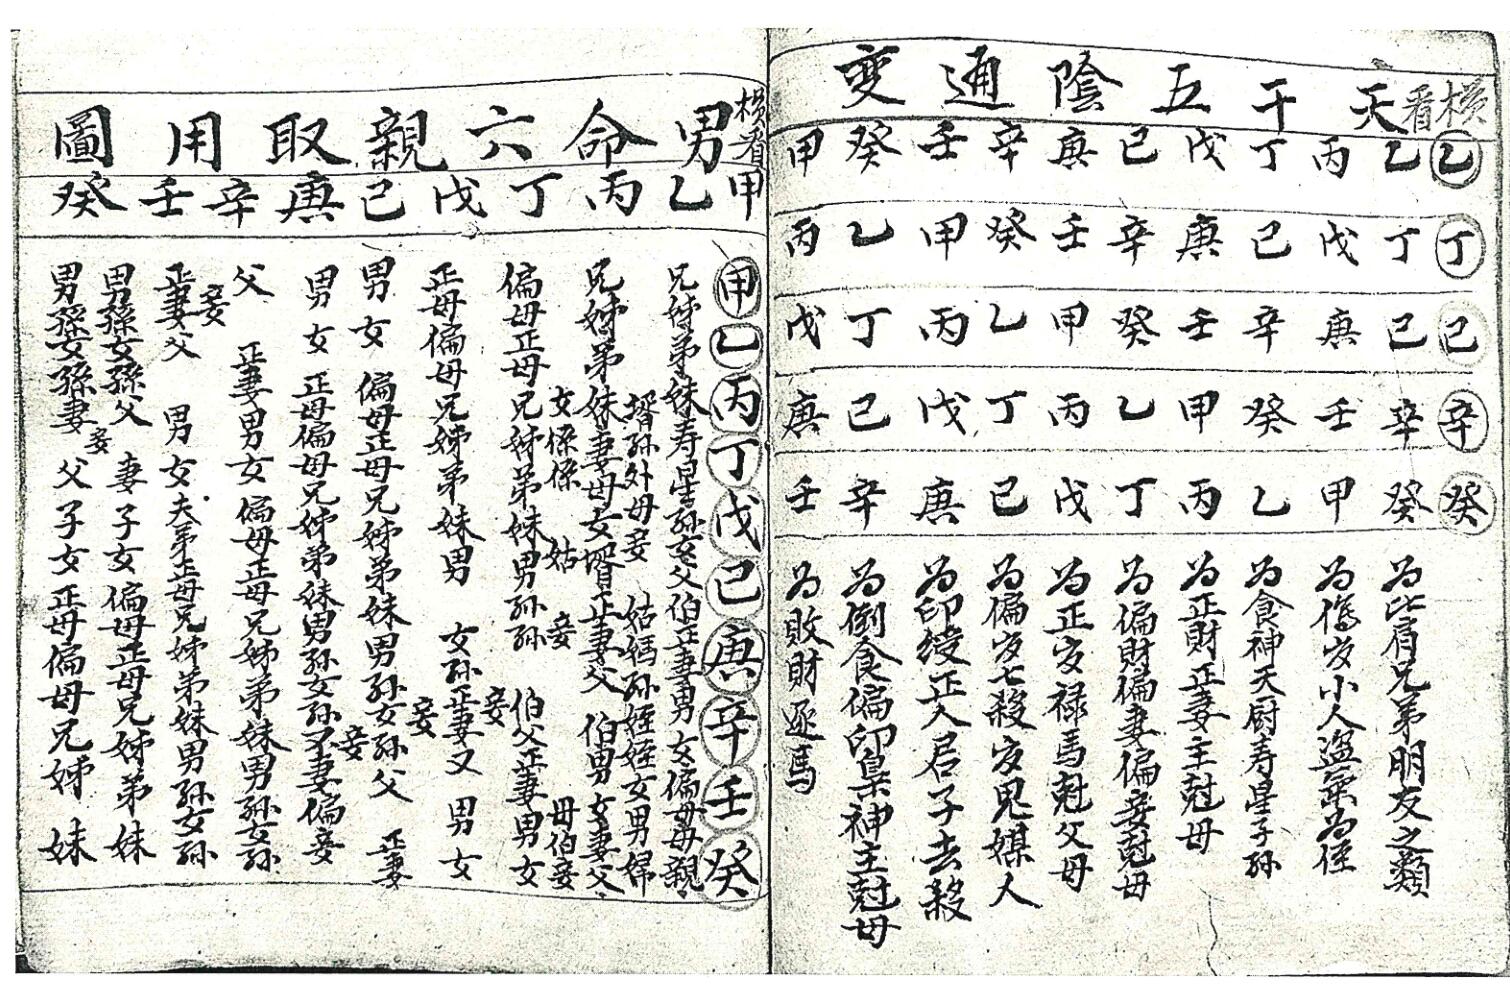 橫看
天干五陰通變
乙乙丙丁戊己庚辛壬癸甲
丁丁戊己庚辛壬癸甲乙丙
己己庚辛壬癸甲乙丙丁戊
辛辛壬癸甲乙丙丁戊己庚
癸癸甲乙丙丁戊己庚辛壬
为比肩兄弟朋友之類
为傷官小人盜氣为侄
为食神天厨寿星子孙
为正財正妻主尅母
为偏財偏妻偏妾尅母
为正官禄馬尅父母
为偏官七殺官鬼媒人
为印綬正人君子去殺
为倒食偏印梟神主尅母
为敗財逐馬
橫看
男命六親取用圖
甲乙丙丁戊己庚辛壬癸
甲乙丙丁戊己庚辛壬癸
兄姊弟妹寿星孙女父伯正妻男女偏母母親
婿孙外母妾姑媽孙姪姪女男婦
兄姊弟妹妻母女婿正妻父伯男女妻父
女 姑妾母伯妾
偏母正母兄姊弟妹男孙孙伯父正妻男女
妾
正母偏母兄姊弟妹男女孙正妻父男女
妾
男女偏母正母兄姊弟妹男孙女孙父正妻
妾
男女正母偏母兄姊弟妹男孙女孙妻偏妾
父正妻男女偏母正母兄姊弟妹男孙女孙
妾
正妻父男女夫弟正母兄姊弟妹男孙女孙
男孫女孫父妻子女偏母正母兄姊弟妹
妾
男孫女孫妻父子女正母偏母兄姊妹